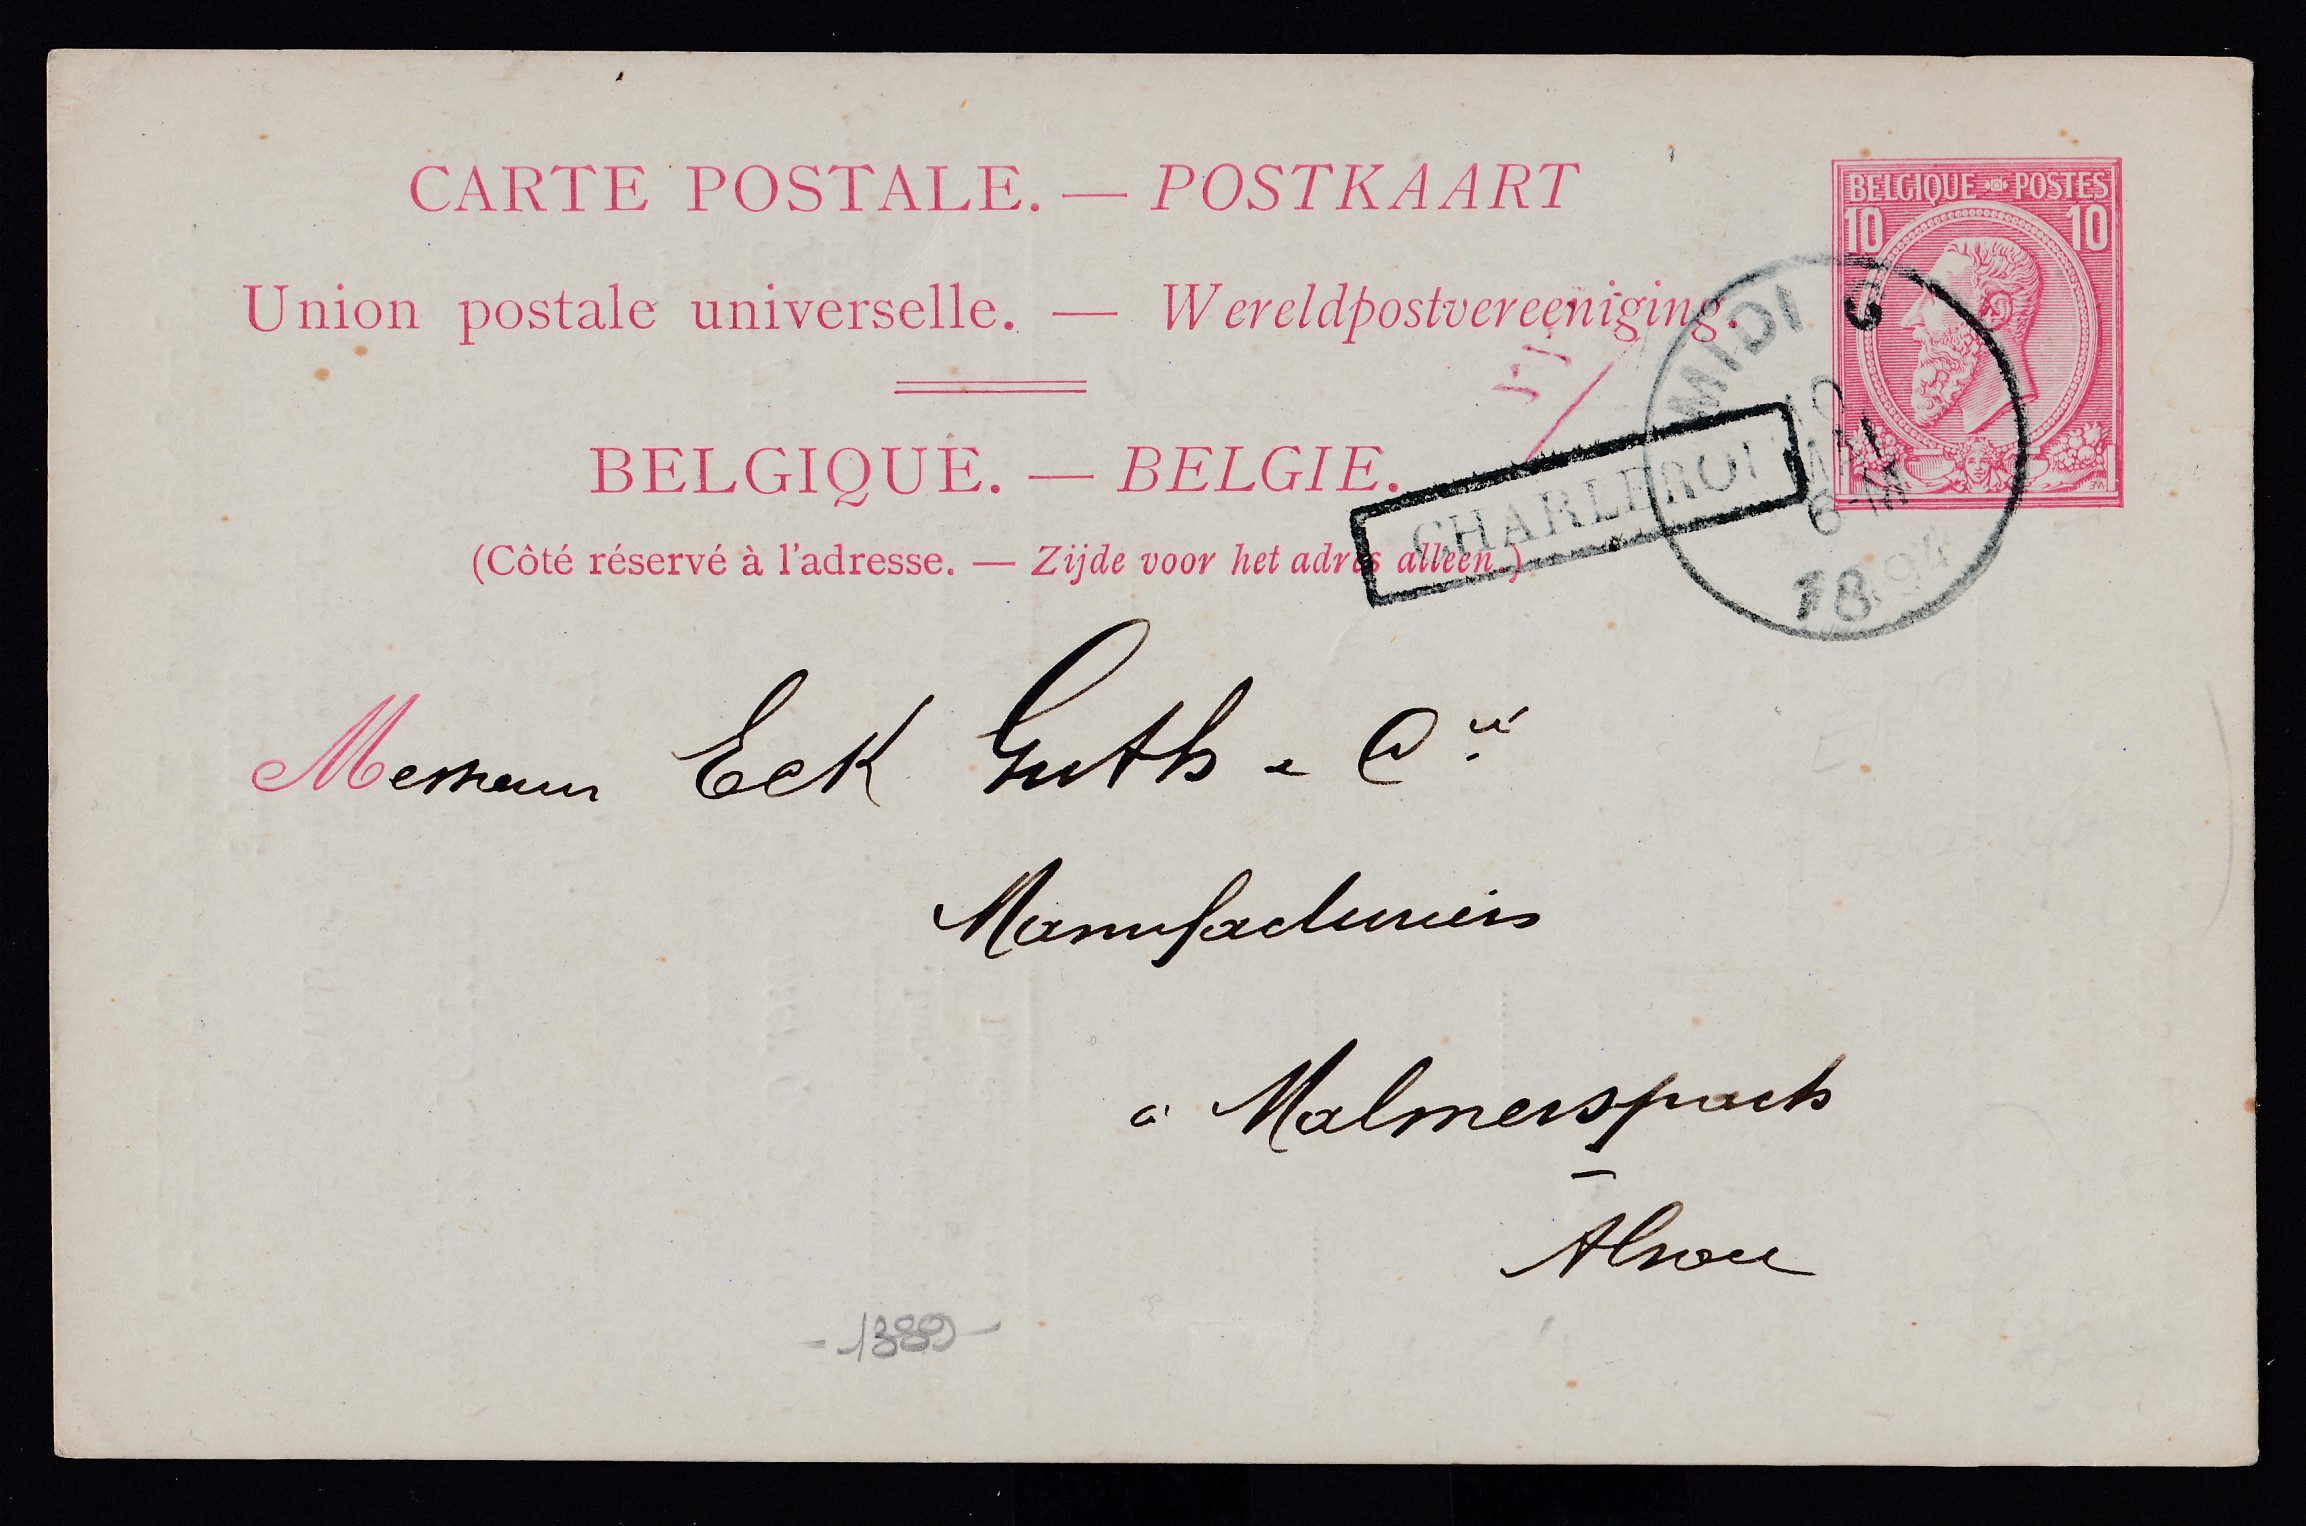 CARTE POSTALE. — POSTKAART
BELGIQUE POSTES
10 10
Union postale universelle. — Wereldpostvereeniging.
MIDI
10
6-M
1894
BELGIQUE. — BELGIE.
CHARLEROI
(Côté réservé à l'adresse. — Zijde voor het adres alleen.)
Messieurs Eck Guth & Cie
Manufacturiers
à Malmerspach
Alsace
-1389-